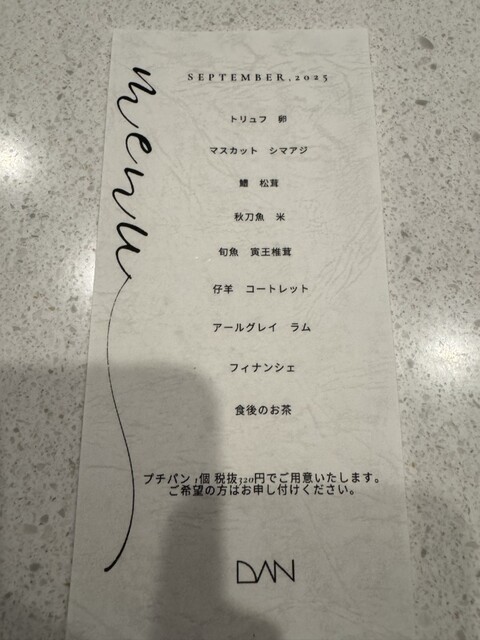 menu
SEPTEMBER,2025
トリュフ 卵
マスカット シマアジ
鱧 松茸
秋刀魚 米
旬魚 寅王椎茸
仔羊 コートレット
アールグレイ ラム
フィナンシェ
食後のお茶
プチパン 1個 税抜320円でご用意いたします。
ご希望の方はお申し付けください。
DAN